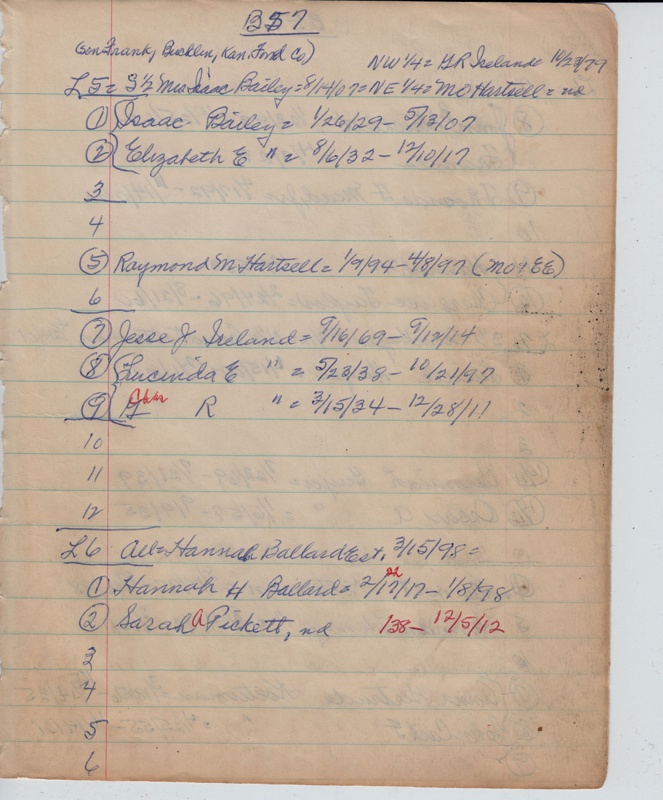 B57
(Gen Frank, Bucklin, Kan. Ford Co) NW 1/4 = G R Iceland = 10/29/79
L5 = S 1/2 Mrs Isaac Bailey = 8/14/07 = NE 1/4 = MO Hartsell = nd
① Isaac Bailey = 1/26/29 – 5/13/07
② Elizabeth E " = 8/6/32 – 12/10/17
3
4
⑤ Raymond M Hartsell = 1/9/94 – 4/8/97 (MO + EE)
6
⑦ Jesse J. Iceland = 9/16/69 – 9/12/14
⑧ Lucinda E " = 5/23/38 – 10/21/97
⑨ G R " = 3/15/34 – 12/28/11
10
11
12
L6 All = Hannah Ballard Est. 3/15/98 =
① Hannah H Ballard = 2/17/17 – 1/8/98
22
② Sarah A Pickett, nd 138 – 12/5/12
3
4
5
6